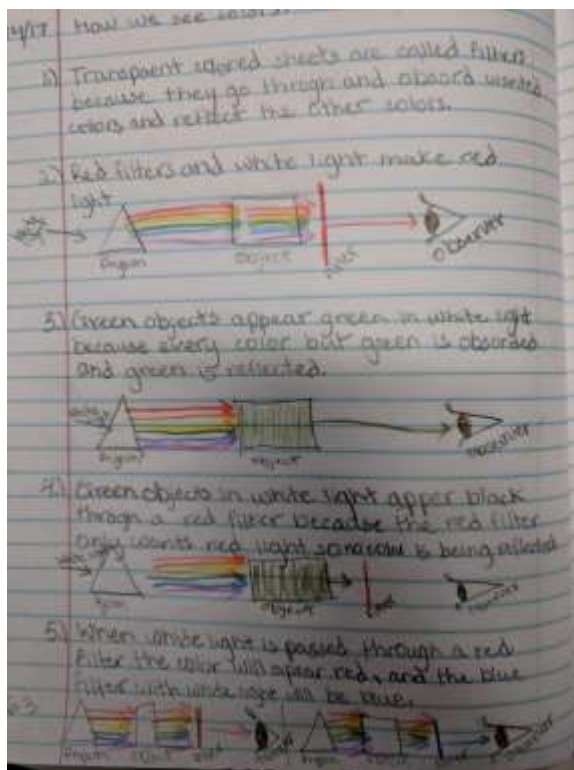 4/17 How we see colors?
1.) Transpaent colored sheets are called filters,
because they go throgh and absord
colors and reflect the other colors.
2.) Red filters and white light make red
light
Prysm
Object
Observer
3.) Green objects appear green in white light
because every color but green is obsorded
and green is reflected.
white
Prysm
object
observer
4.) Green objects in white light apper black
throgh a red filter because the red filter
only wants red light is being reflected
object
red
observer
5.) When white light is passed through a red
filter the color will apear red, and the blue
filter with white light will be blue.
Prysm
observer